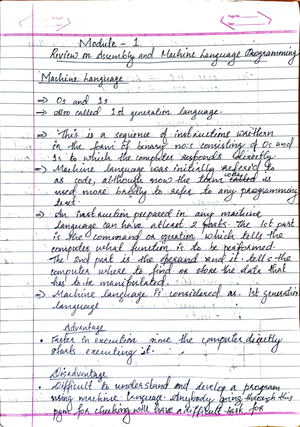 Module - 1
Review on Assembly and Machine Language Programming
Machine Language
⇒ 0s and 1s
⇒ also called 1st generation language.
⇒ This is a sequence of instructions written
in the form of binary no:s consisting of 0s and
1s to which the computer responds directly.
⇒ Machine language was initially referred to
as code, although now the term code is
used more broadly to refer to any programming
text.
⇒ An instruction prepared in any machine
language can have atleast 2 parts. The 1st part
is the command or operation which tells the
computer what function is to be performed.
The 2nd part is the operand and it tells the
computer where to find or store the data that
has to be manipulated.
⇒ Machine language is considered as 1st generation
language
Advantage
• Faster in execution since the computer directly
starts executing it.
Disadvantage
• Difficult to understand and develop a program
using machine language. Anybody going through this
pgm for checking will have a difficult task for